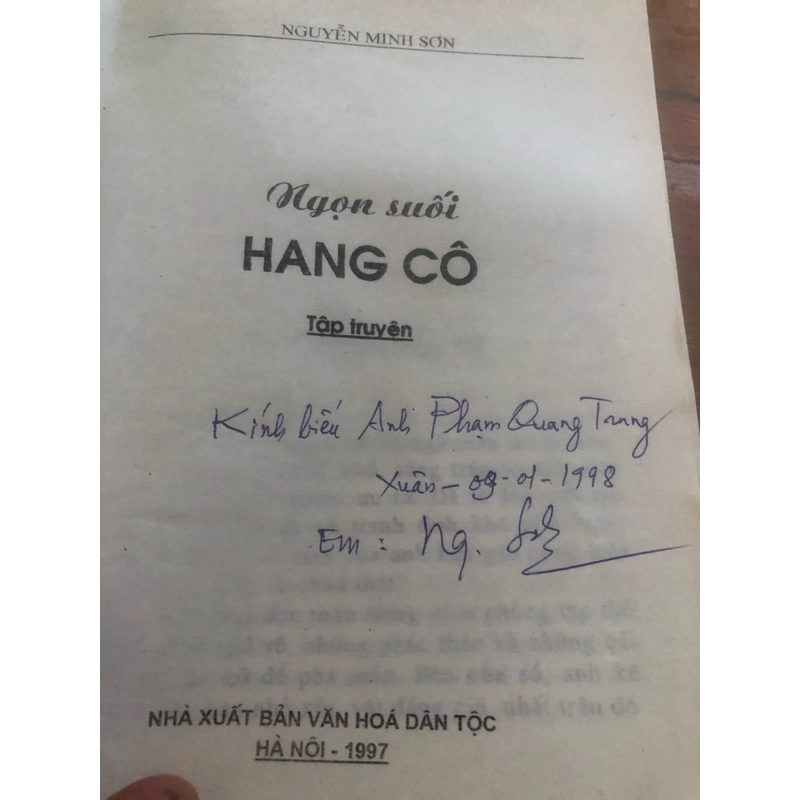 NGUYỄN MINH SƠN
Ngọn suối
HANG CÔ
Tập truyện
Kính biếu Anh Phạm Quang Trung
Xuân - 09-01-1998
Em: Ng.
NHÀ XUẤT BẢN VĂN HOÁ DÂN TỘC
HÀ NÔI - 1997